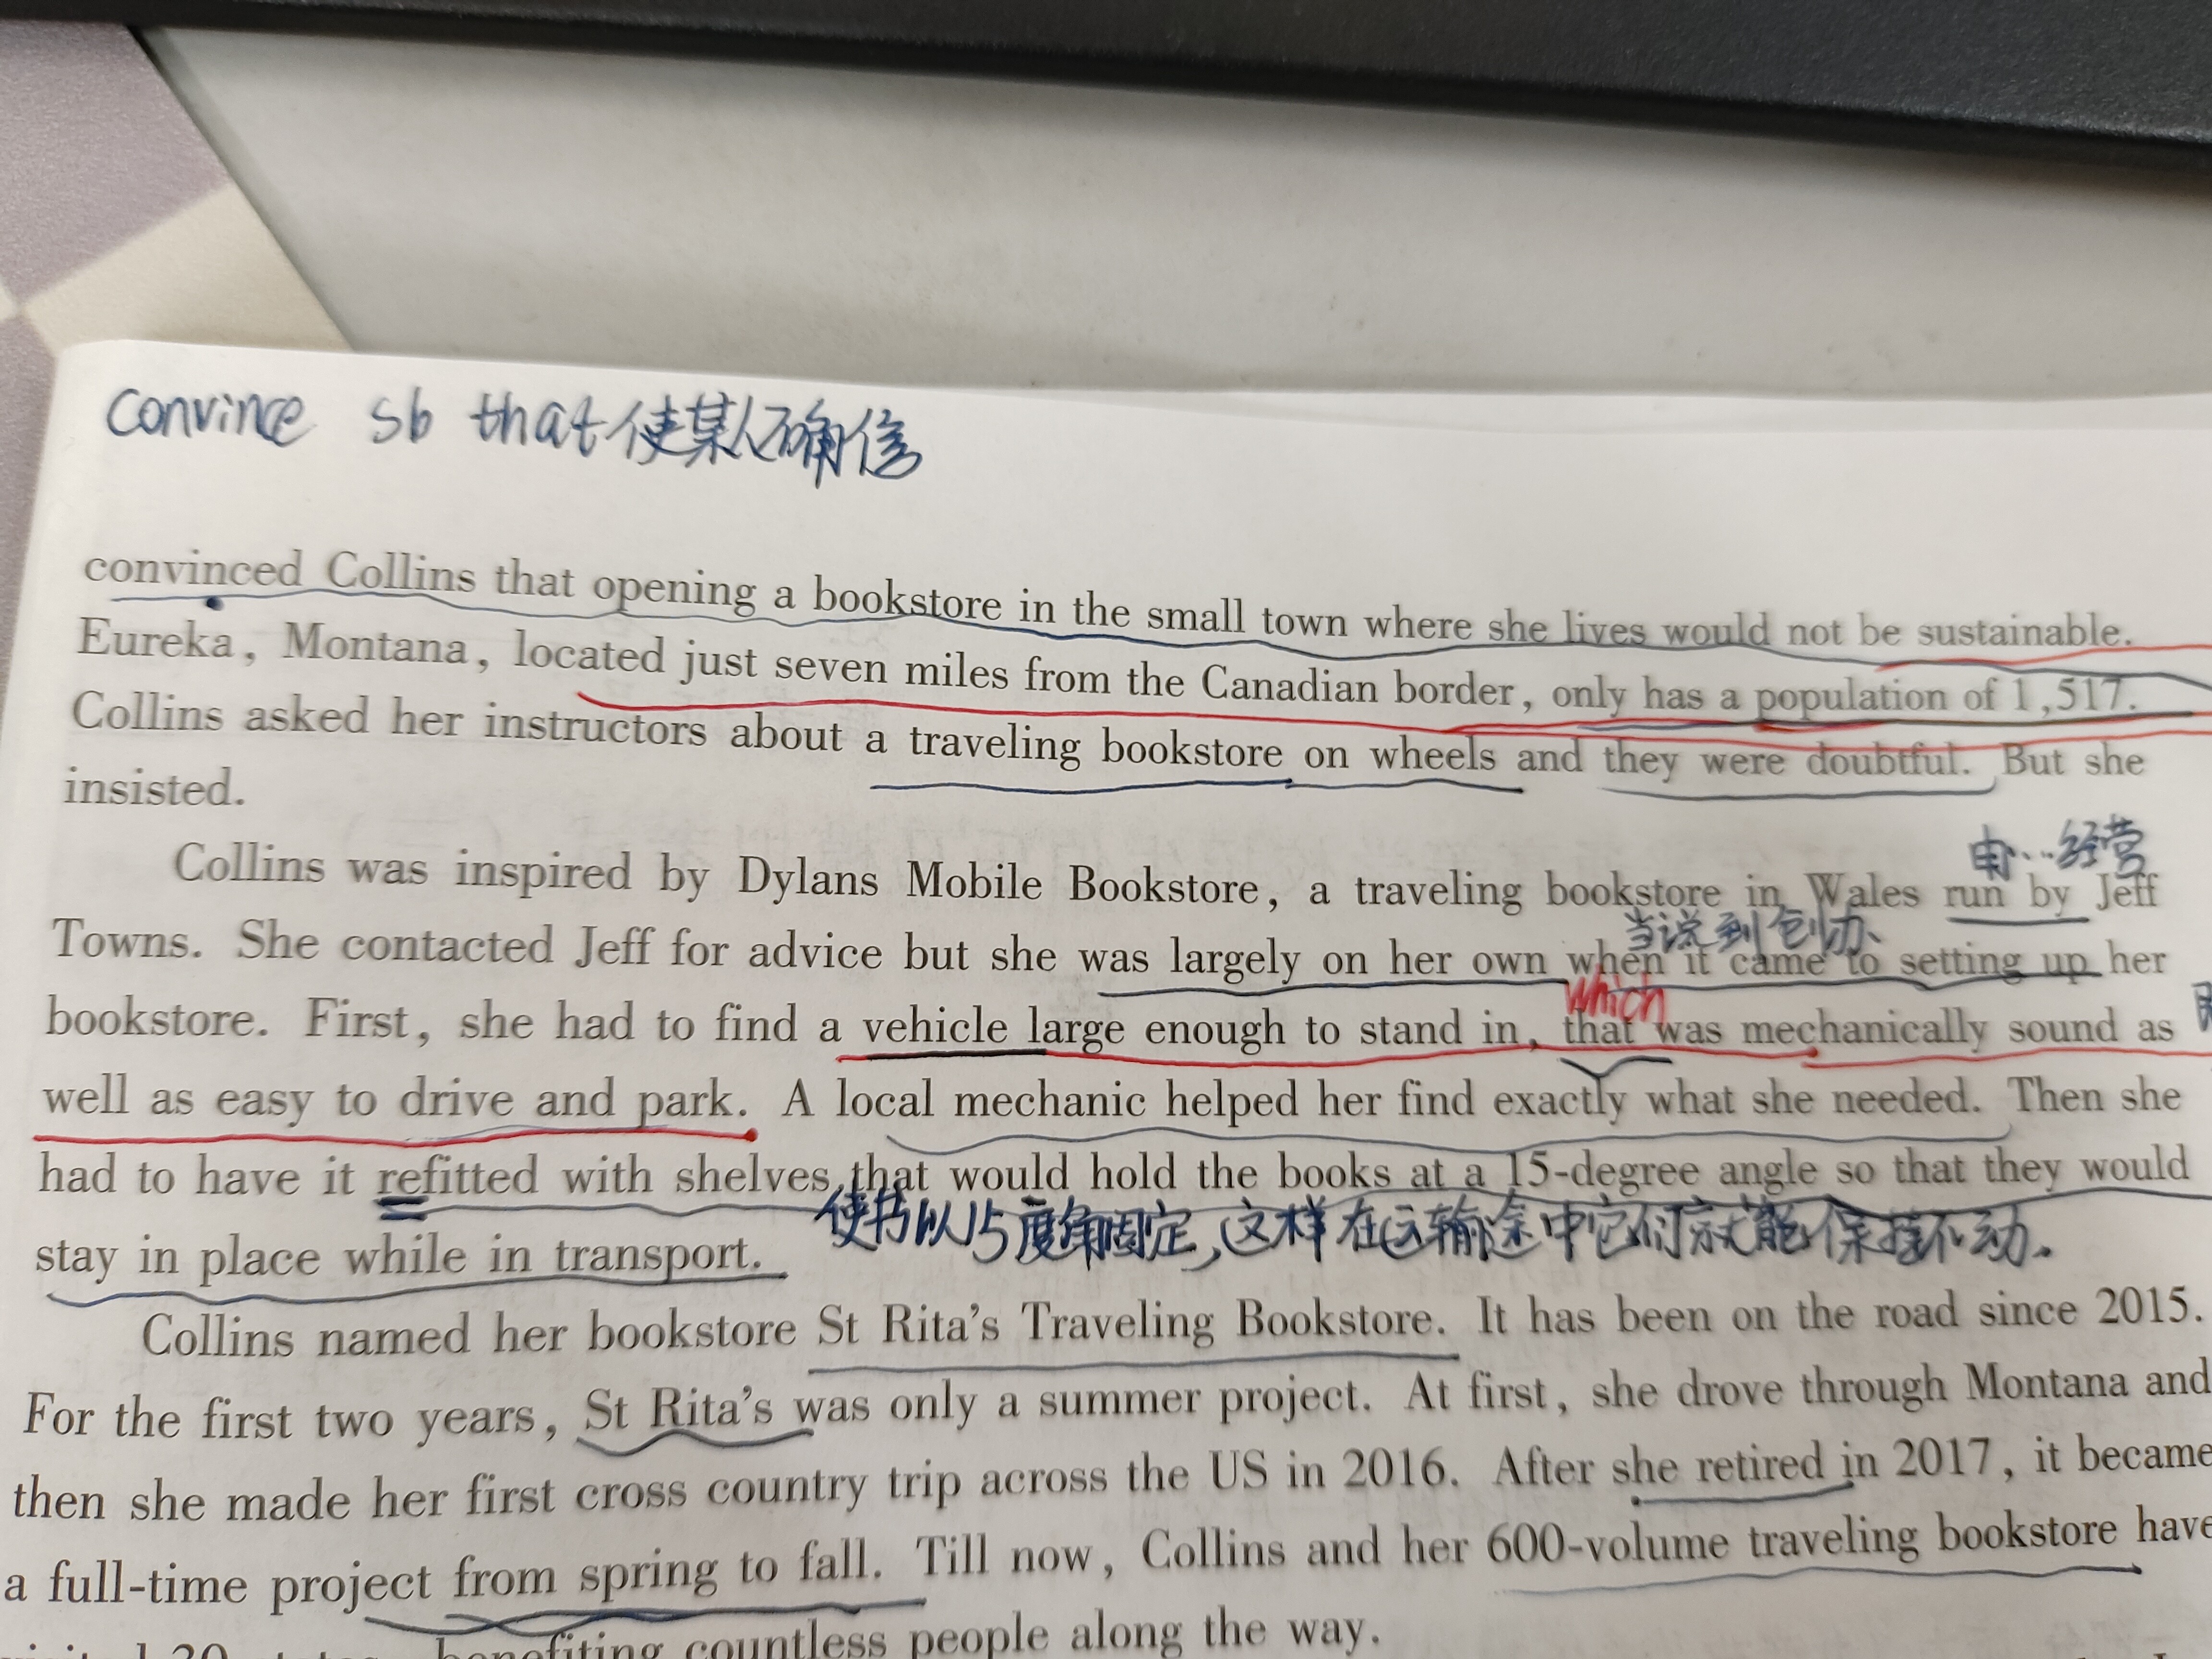 convince sb that 使某人确信
convinced Collins that opening a bookstore in the small town where she lives would not be sustainable.
Eureka, Montana, located just seven miles from the Canadian border, only has a population of 1,517.
Collins asked her instructors about a traveling bookstore on wheels and they were doubtful. But she
insisted.
由…经营
Collins was inspired by Dylans Mobile Bookstore, a traveling bookstore in Wales run by Jeff
当说到创办
Towns. She contacted Jeff for advice but she was largely on her own when it came to setting up her
which
bookstore. First, she had to find a vehicle large enough to stand in, that was mechanically sound as
well as easy to drive and park. A local mechanic helped her find exactly what she needed. Then she
had to have it refitted with shelves that would hold the books at a 15-degree angle so that they would
使书以15度角固定,这样在运输途中它们就能保持不动。
stay in place while in transport.
Collins named her bookstore St Rita's Traveling Bookstore. It has been on the road since 2015.
For the first two years, St Rita's was only a summer project. At first, she drove through Montana and
then she made her first cross country trip across the US in 2016. After she retired in 2017, it became
a full-time project from spring to fall. Till now, Collins and her 600-volume traveling bookstore have
benefiting countless people along the way.